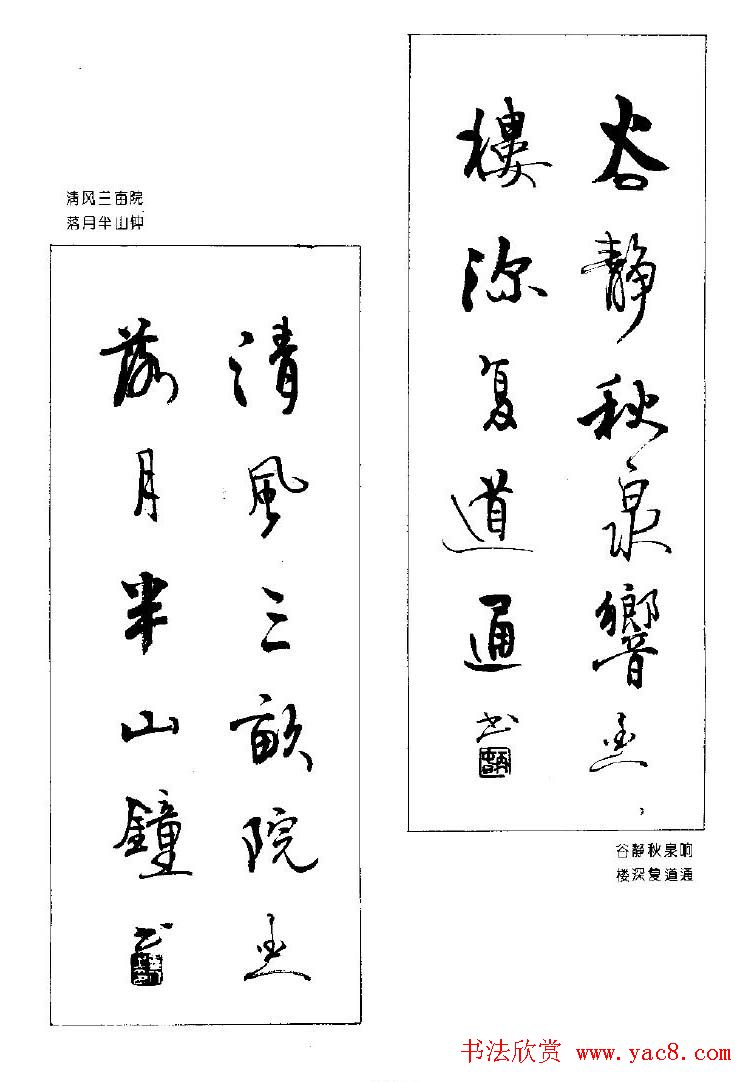 谷靜秋泉響
樓深复道通
书
谷静秋泉响
楼深复道通
清风三亩院
落月半山钟
清風三畝院
落月半山鐘
书
书法欣赏 www.yac8.com